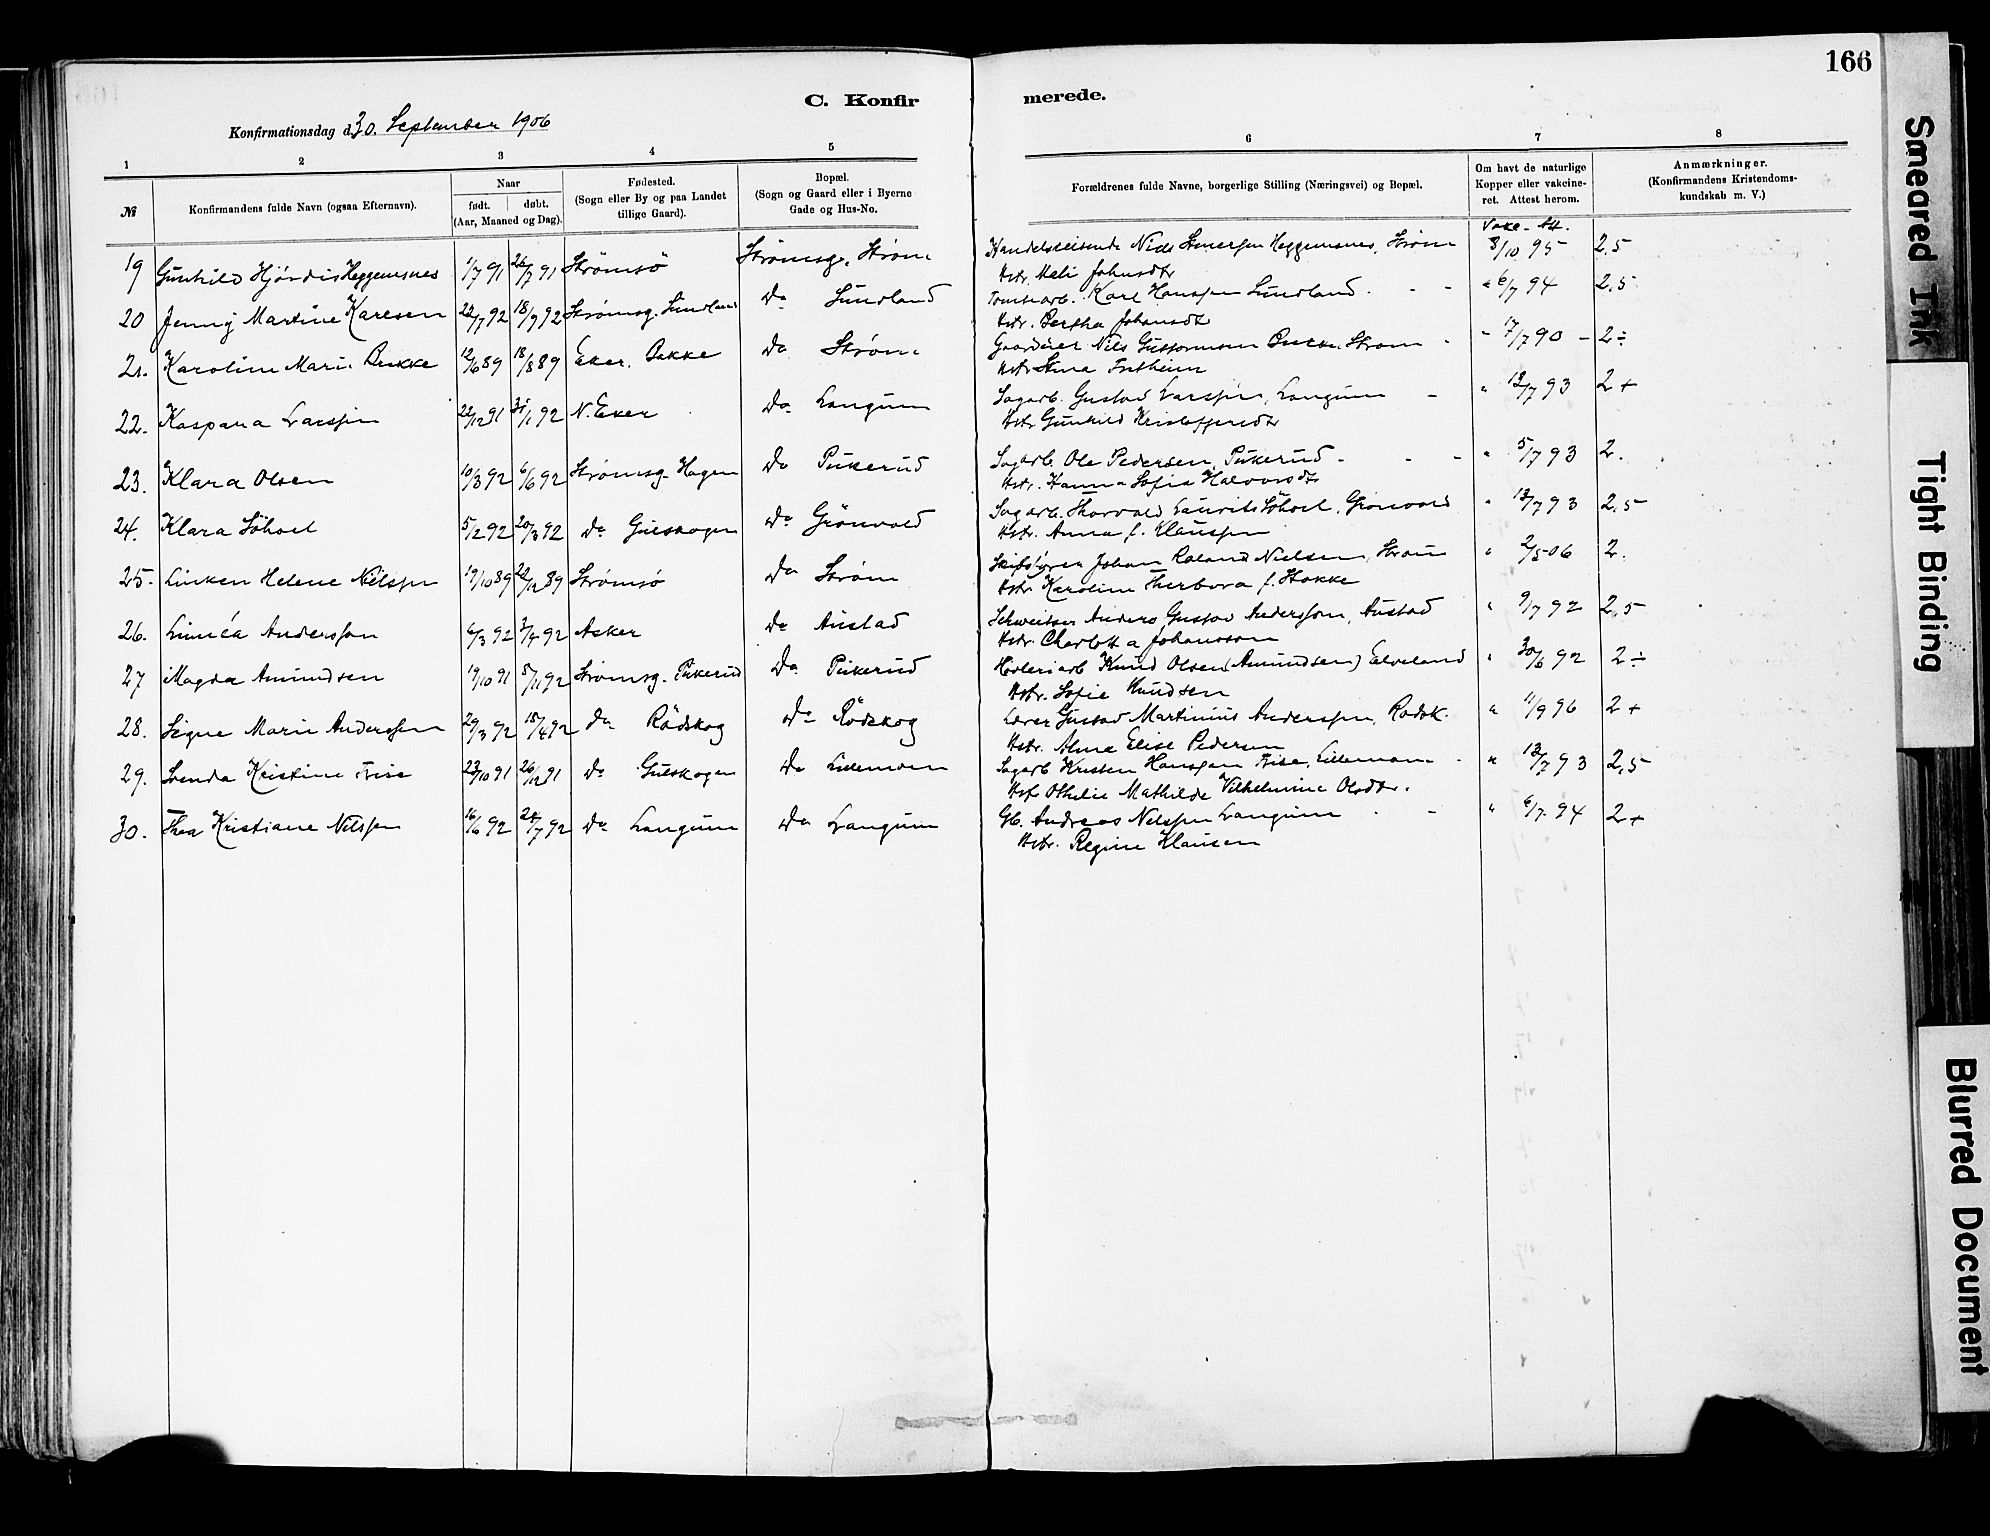 166
C. Konfirmerede.
Konfirmationsdag d. 30. September 1906
1 2 3 4 5 6 7 8
№ Konfirmandens fulde Navn (ogsaa Efternavn). Naar født. døbt. (Aar, Maaned og Dag). Fødested. (Sogn eller By og paa Landet tillige Gaard). Bopæl. (Sogn og Gaard eller i Byerne Gade og Hus-No. Forældrenes fulde Navne, borgerlige Stilling (Næringsvei) og Bopæl. Om havt de naturlige Kopper eller vakcineret. Attest herom. Anmærkninger. (Konfirmandens Kristendomskundskab m. V.)
Vakc. Att.
19 Gunhild Hjørdis Heggemsnes 1/7 91 26/7 91 Strømsö Strømsg. Strøm Handelsreisende Nils Heggemsnes, Strøm 3/10 95 2.5
Hstr. Meli Johnsdtr
20 Jenny Martine Karlsen 22/7 92 18/9 92 Strømsg. Sundland Do Sundland Tomtearb. Karl Hanssen Sundland - - " 6/7 94 2.5
Hstr. Bertha Johansdtr
21. Karoline Marie Bakke 12/6 89 18/8 89 Eker. Bakke Do Strøm Gaardeier Nils Guttormsen Strøm - " 17/7 90 - 2÷
Hstr Stina
22. Kaspara Larssen 22/12 91 31/1 92 N. Eker Do Langum Sagarb. Gustav Larssen, Langum - " 13/7 93 2+
Hstr Gunhild Kristoffersdtr
23. Klara Olsen 10/3 92 6/6 92 Strømsg. Hagen Do Pukerud Sagarb. Ole Pedersen, Pukerud - - - " 5/7 93 2.
Hstr. Hanna Sofie Halvorsdtr
24. Klara Söhoel 5/2 92 20/3 92 Do Gulskogen Do Grönvold Sagarb. Thorvald Laurits Söhoel, Gronvold " 13/7 93 2,5
Hstr. Anna f. Klaussen
25. Linken Helene Nielssen 19/10 89 22/12 89 Strømsö Do Strøm Skifsfører Johan Roland Nielsen, Strøm " 2/5 06 2.
Hstr Karoline Therbora f. Stokke
26. Linnéa Andersson 6/3 92 3/4 92 Asker Do Austad Schweitser Anders Gustav Andersson, Austad " 9/7 92 2,5
Hstr. Charlotta Johansson
27 Magda Amundsen 19/10 91 5/11 92 Strømsg. Pukerud Do Pukerud Høvleriarb Knud Olsen (Amundsen) Eelveland " 30/6 92 2÷
Hstr. Sofie Knudsen
28. Signe Marie Anderssen 29/3 92 18/4 92 Do Rödskog Do Rödskog Lærer Gustav Martinius Anderssen, Rodsk. " 11/9 96 2+
Hstr. Alma Elise Pedersen
29. Svenda Kristine Friise 23/10 91 26/12 91 Do Gulskogen Do Lillemoen Sagarb Kristen Hanssen Friise, Lillemoen - " 13/7 93 2,5
Hstr Othelie Mathilde Vilhelmine Olsdtr.
30. Thea Kristiane Nilssen 16/6 92 24/7 92 Do Langum Do Langum Gb. Andreas Nilssen Langum - - " 6/7 94 2+
Hstr. Regine Klausen
Smeared Ink
Tight Binding
Blurred Document